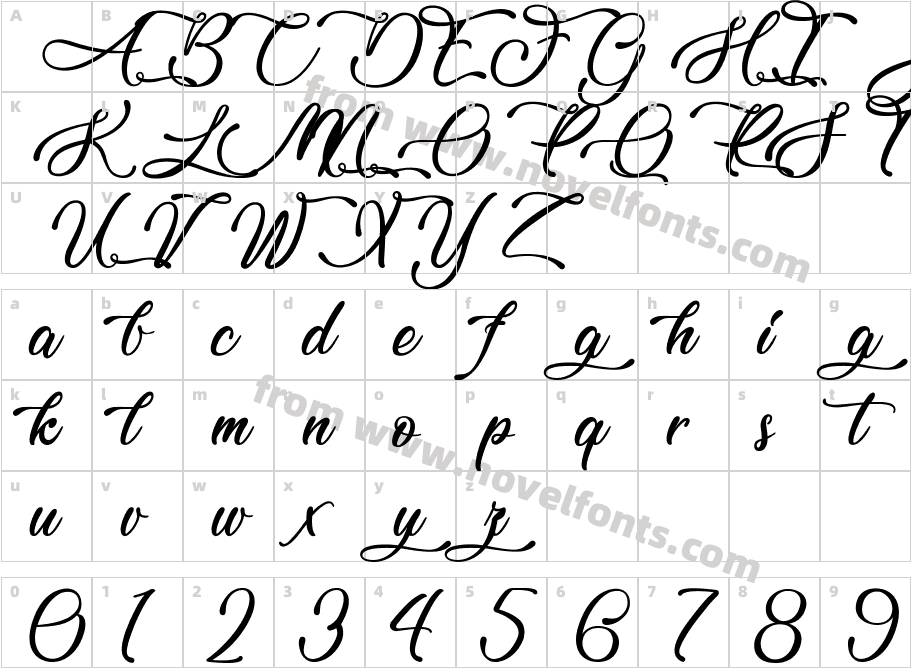 A B C D E F G H I J
A B C D E F G H I
from www.novelfonts.com
K L M N O P Q R S T
K L M N O P Q R S T
U V W X Y Z
U V W X Y Z
a b c d e f g h i g
a b c d e f g h i g
k l m n o p q r s t
k l m n o p q r s t
from www.novelfonts.com
u v w x y z
u v w x y z
0 1 2 3 4 5 6 7 8 9
0 1 2 3 4 5 6 7 8 9